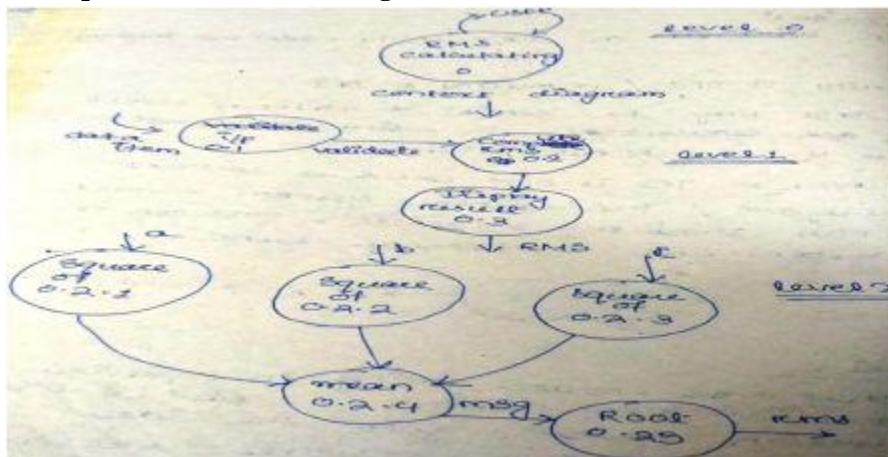 User
RMS
Calculating
0
level 0
context diagram
data
item
validate
I/P
0.1
validate
RMS
0.2
level 1
Display
result
0.3
RMS
a
Square
of
0.2.1
b
Square
of
0.2.2
c
Square
of
0.2.3
level 2
mean
0.2.4
msg
Root
0.25
rms